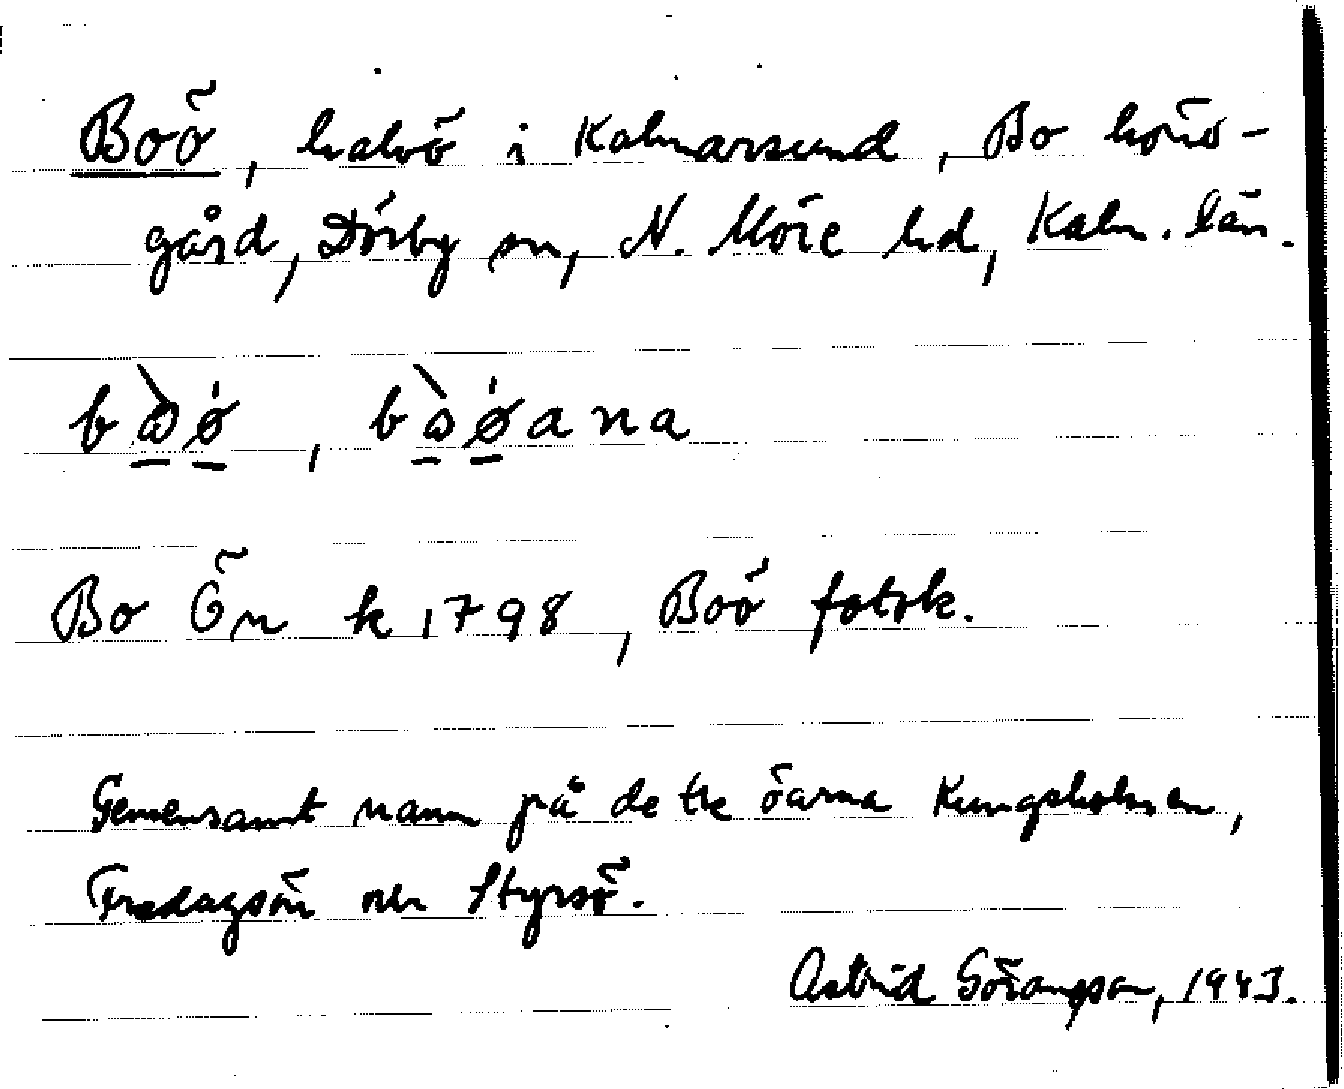 Boö, halvö i Kalmarsund, Bo kono-
gård, Dörby sn, N. Möre hd, Kalm. län.
bὼø, bὼøana
Bo Ön k 1798, Boö fotok.
Gemensamt namn på de tre öarna Kungsholmen,
Fredagsön och Styrsö.
Astrid Göransson, 1943.